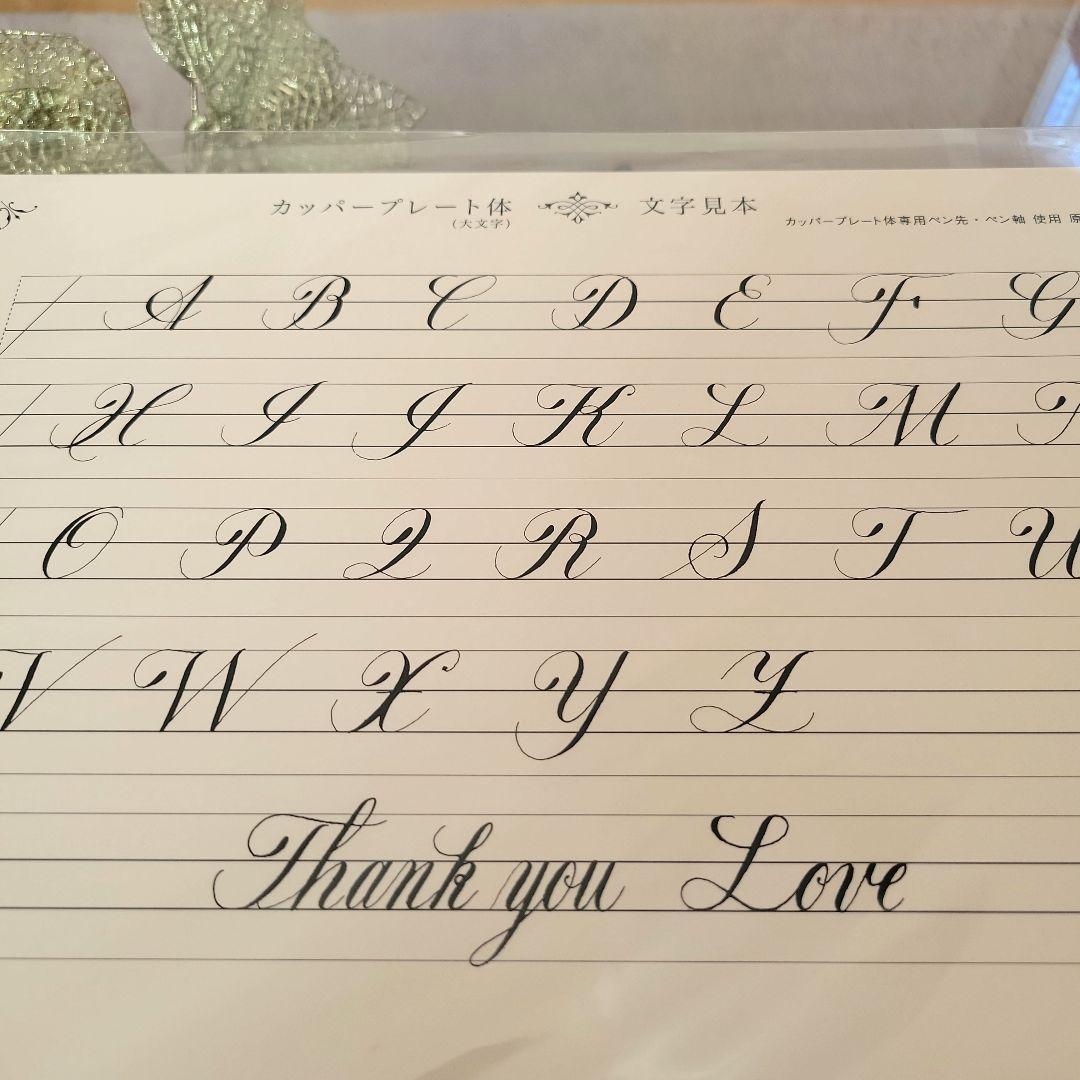 カッパープレート体 文字見本
(大文字)
カッパープレート体専用ペン先・ペン軸 使用
A B C D E F G
H I J K L M
O P Q R S T U
V W X Y Z
Thank you Love